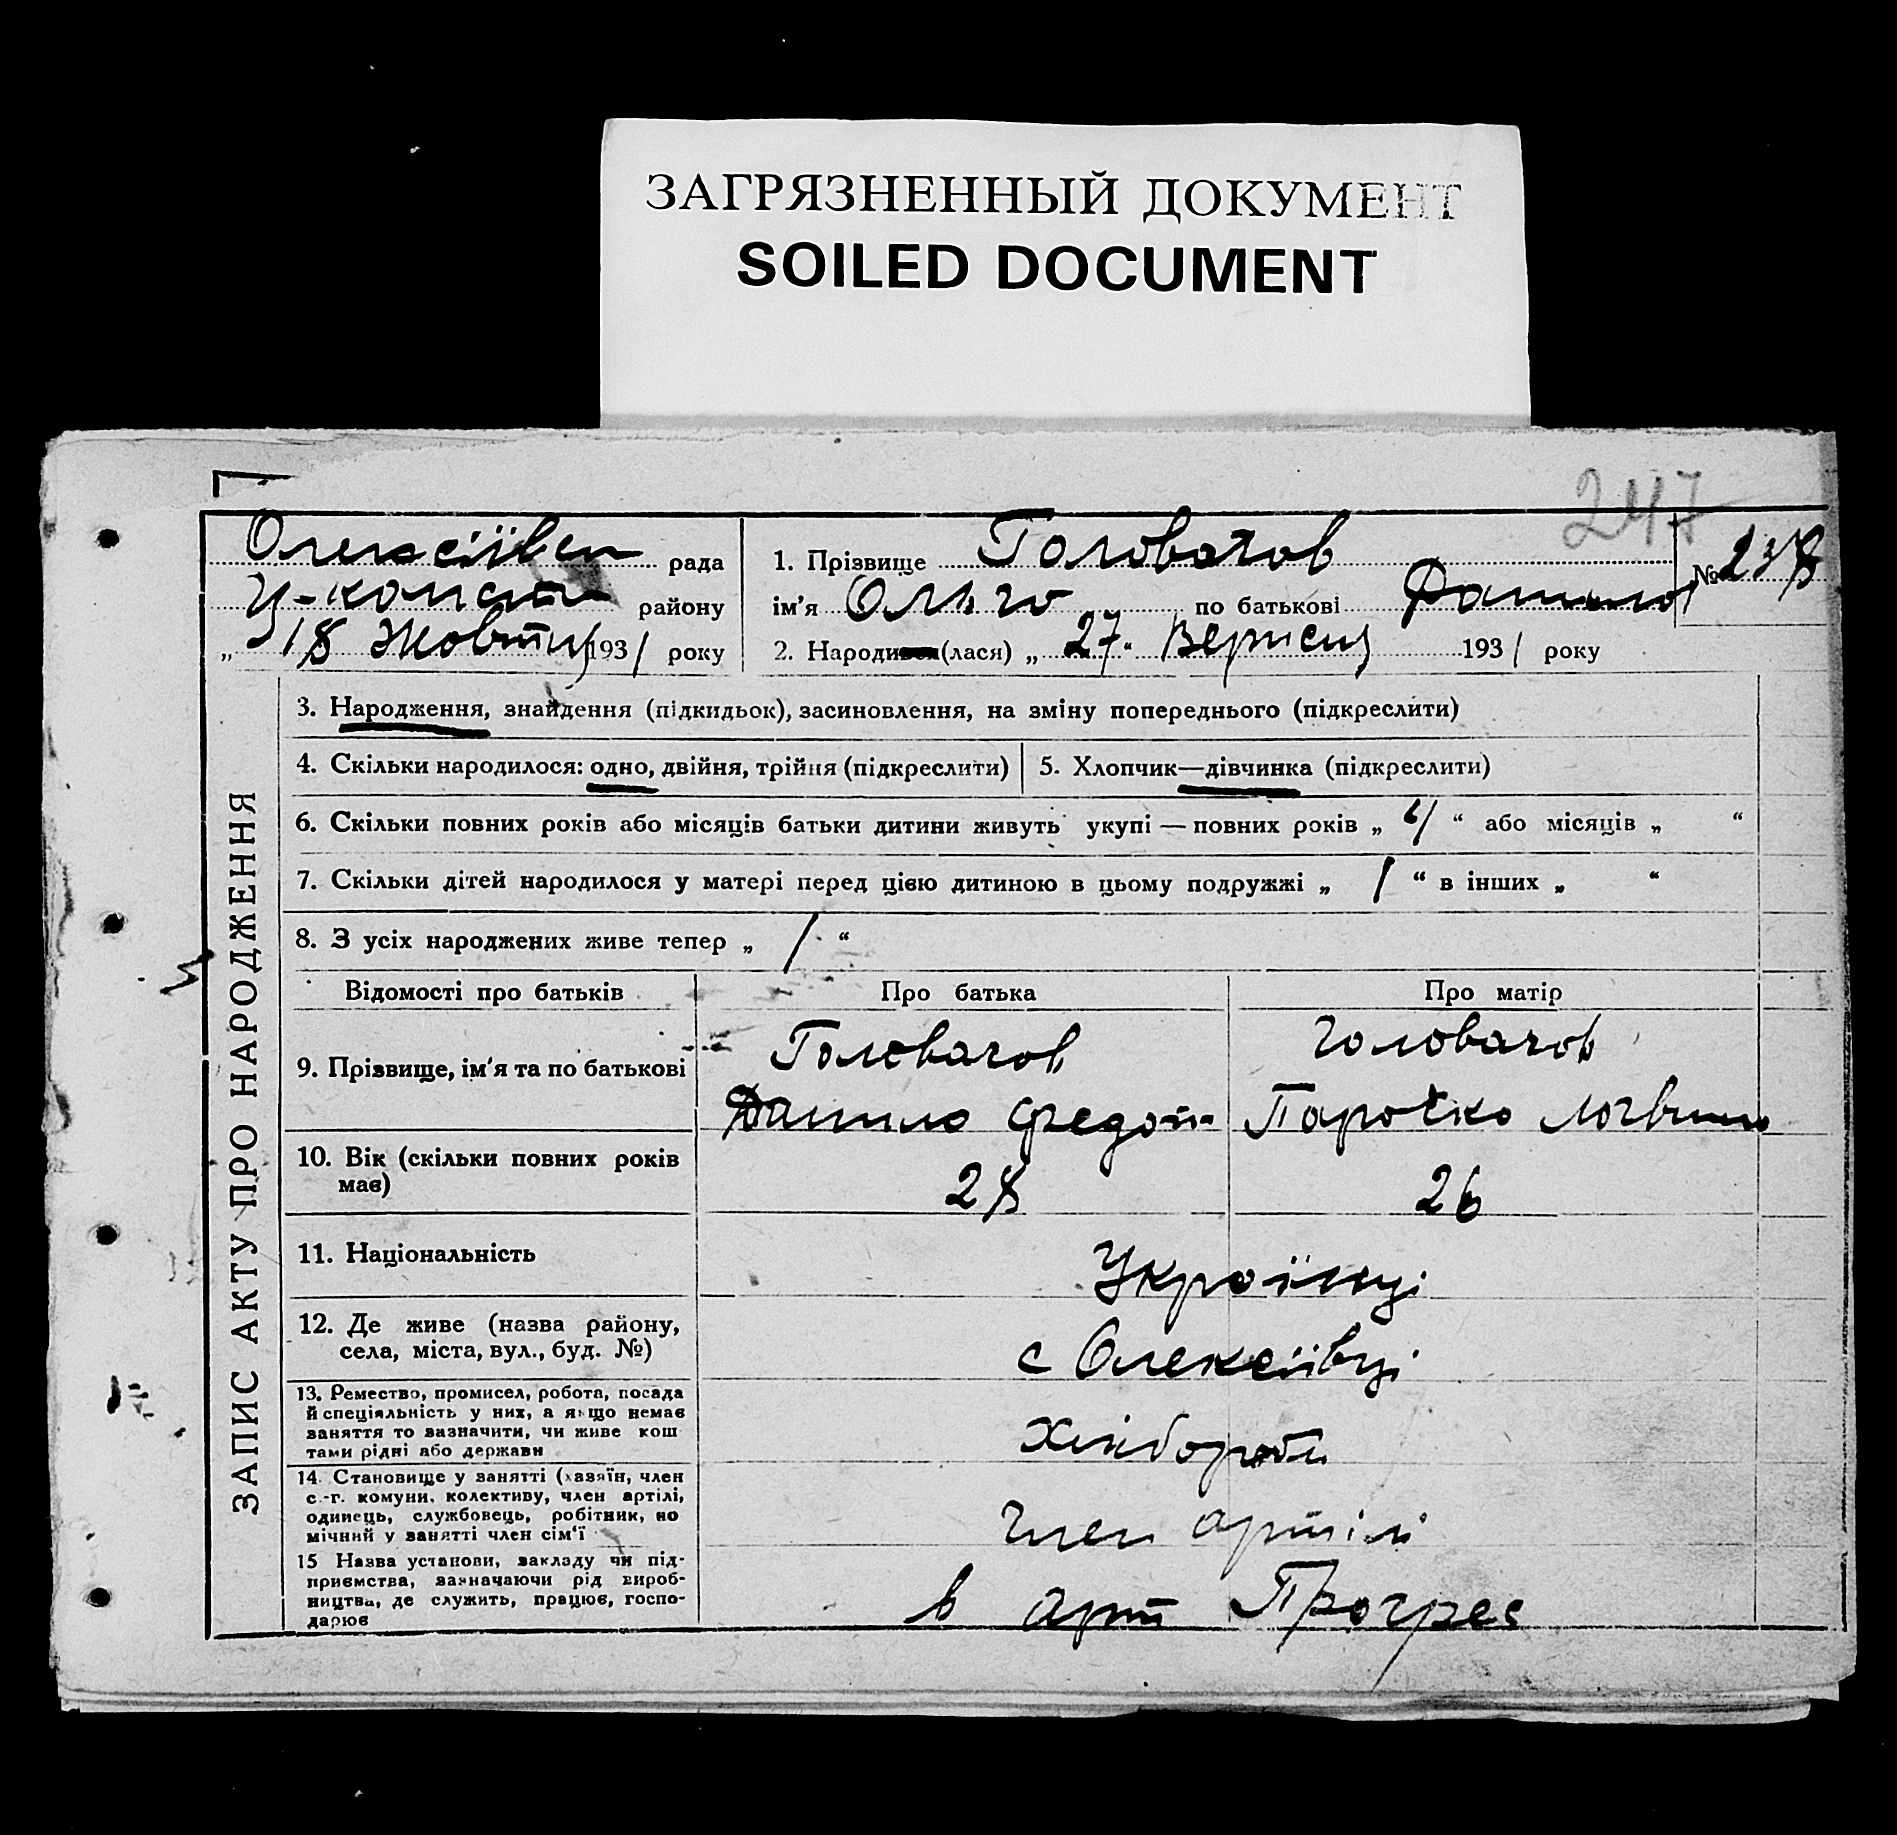 ЗАГРЯЗНЕННЫЙ ДОКУМЕНТ
SOILED DOCUMENT
247
Олексіївсь рада
району
„ 18 Жовтня 1931 року
1. Прізвище Головачов
№ 238
ім'я Ольга по батькові Данилов
2. Народи (лася) „ 27 " Вересня 1931 року
ЗАПИС АКТУ ПРО НАРОДЖЕННЯ
3. Народження, знайдення (підкидьок), засиновлення, на зміну попереднього (підкреслити)
4. Скільки народилося: одно, двійня, трійня (підкреслити) 5. Хлопчик—дівчинка (підкреслити)
6. Скільки повних років або місяців батьки дитини живуть укупі — повних років „ “ або місяців „ “
7. Скільки дітей народилося у матері перед цією дитиною в цьому подружжі „ 1 “ в інших „ “
8. З усіх народжених живе тепер „ 1 “
Відомості про батьків Про батька Про матір
9. Прізвище, ім'я та по батькові
Головачов
Данило Федот
Головачов
Парочка Логвин
10. Вік (скільки повних років
має)
28 26
11. Національність Українці
12. Де живе (назва району,
села, міста, вул., буд. №)
с Олексіївці
13. Ремество, промисел, робота, посада
й спеціяльність у них, а якщо немає
заняття то зазначити, чи живе кош
тами рідні або держави
Хлібороби
14. Становище у занятті (хазяїн, член
с.-г. комуни, колективу, член артілі,
одинець, службовець, робітник, по
мічний у занятті член сім'ї
член артілі
15 Назва установи, закладу чи під-
приємства, зазначаючи рід вироб-
ництва, де служить, працює, госпо-
дарює
в арт Прогрес